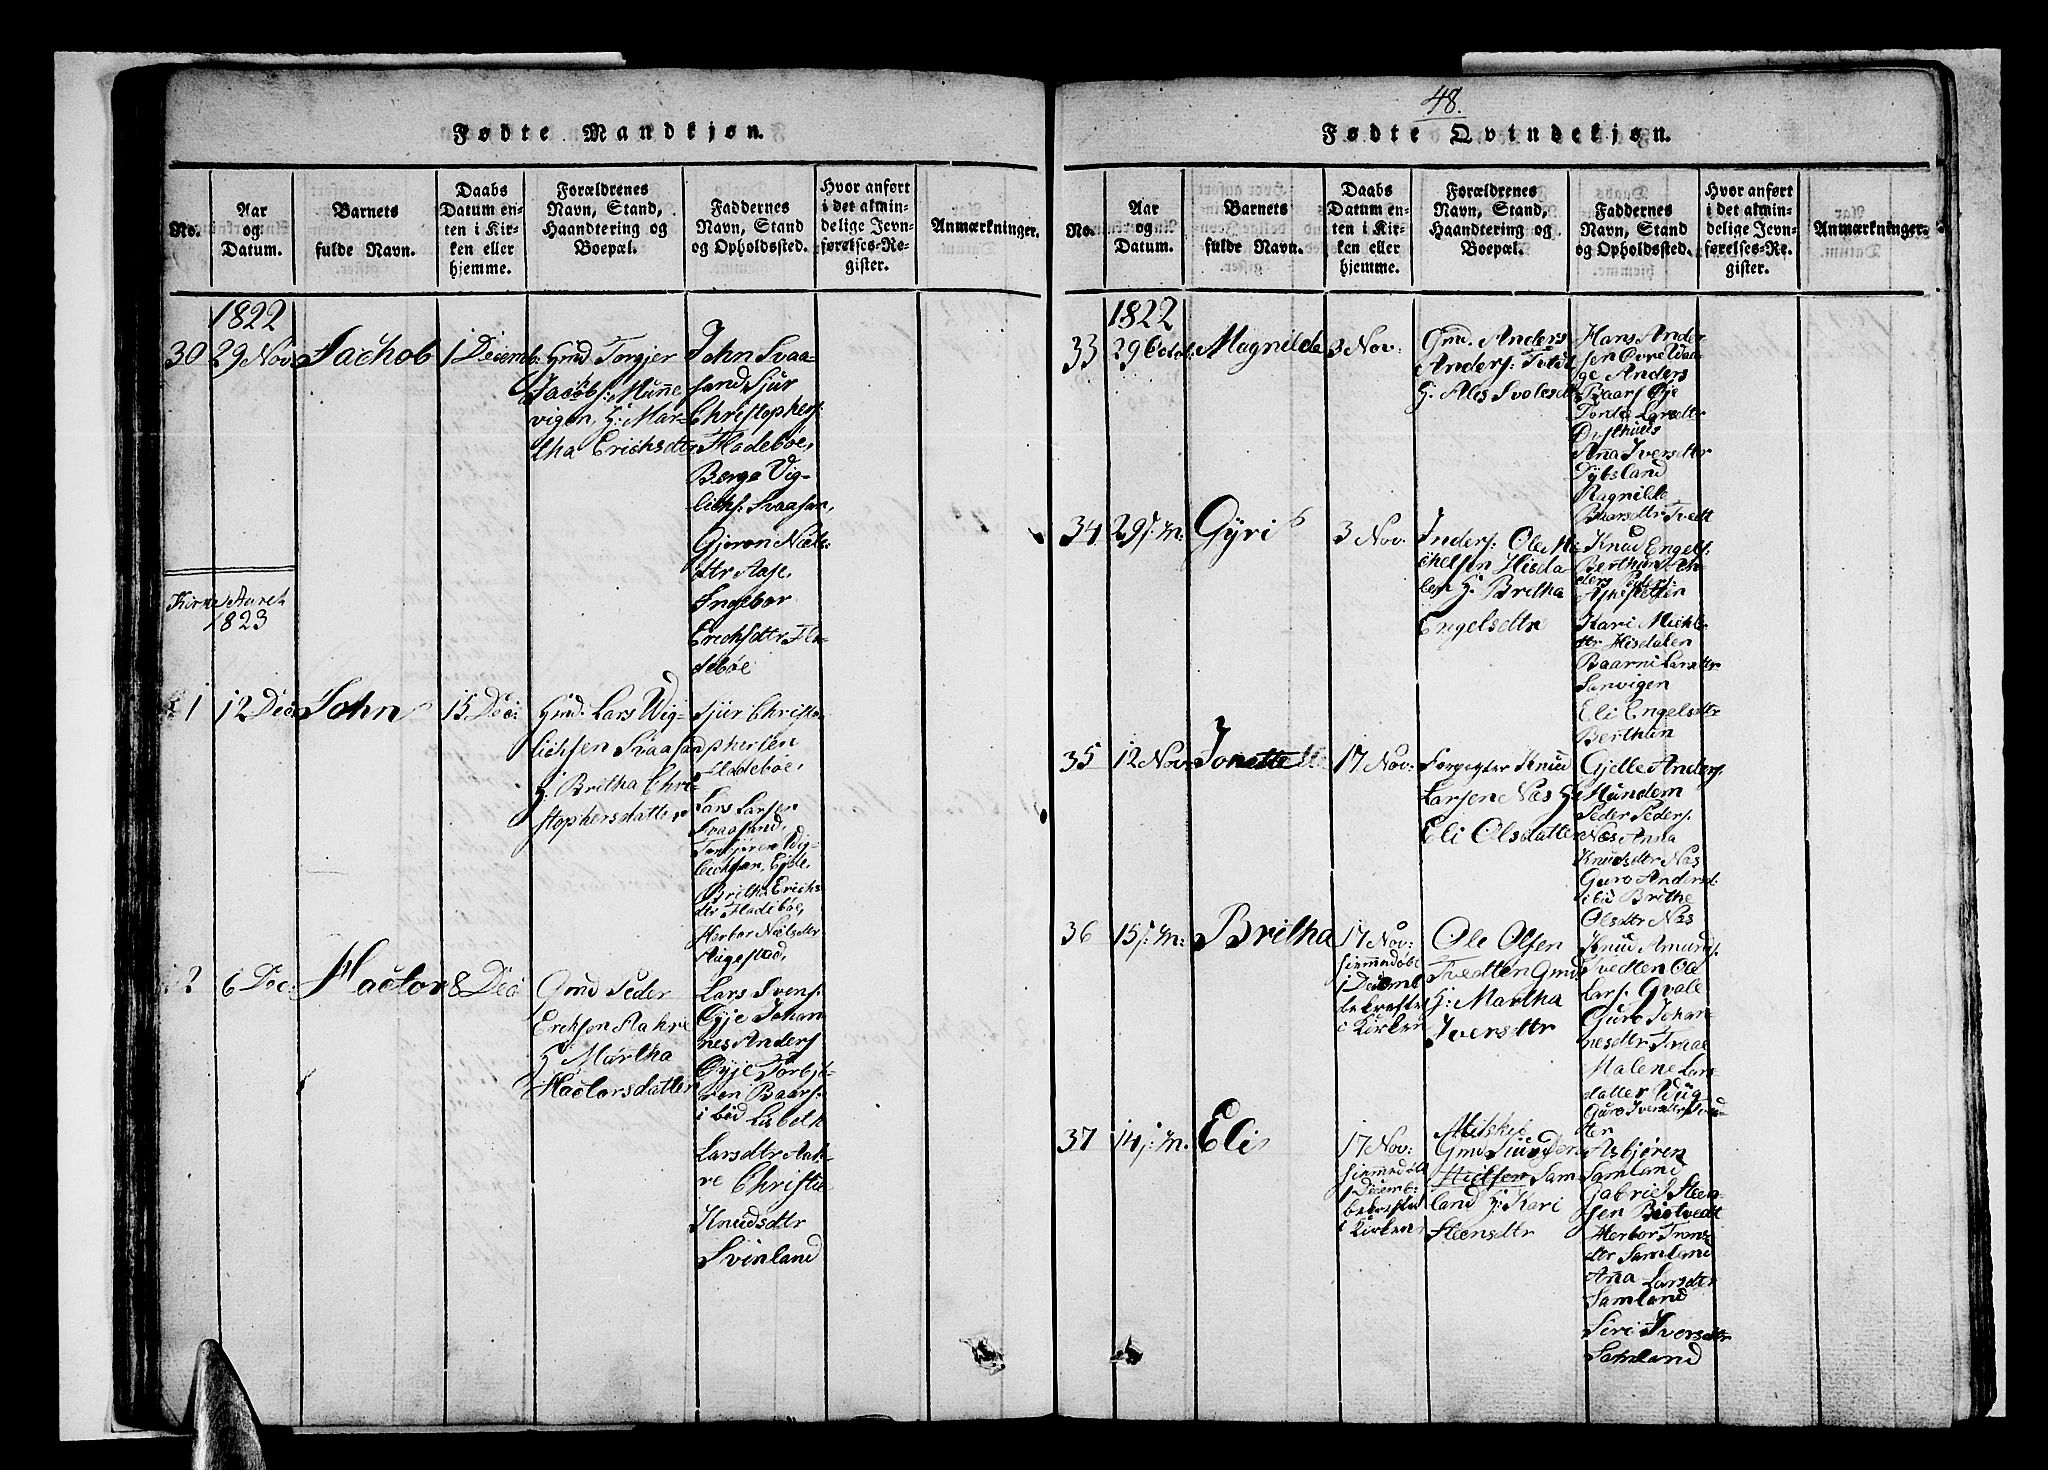 Fødte Mandkjøn.
No.
Aar
og
Datum.
Barnets
fulde Navn.
Daabs
Datum en-
ten i Kir-
ken eller
hjemme.
Forældrenes
Navn, Stand,
Haandtering og
Boepæl.
Faddernes
Navn, Stand
og Opholdssted.
Hvor anført
i det almin-
delige Jevn-
førelses-Re-
gister.
Anmærkninger.
1822
30
29 Nov.
Jachob
1 Decemb.
Gmd Torgjer
Jacobs: Munne
vigen, H: Mar-
tha Erichsdtr
John Svaa-
sand Sjur
Christophers:
Fladeboe,
Børge Vig-
lichs: Svaasan,
Gjøron Niels
dtr Aase,
Ingebor
Erichsdtr Fla
deboe
Kirke Aaret
1823
1
12 Dec:
John
15 Dec:
Gmd: Lars Wig-
lichsen Svaasand
H: Britha Chri-
stophersdatter
Sjur Christo-
phersen
Fladeboe,
Lars Larsen
Svaasand,
Torbjøren Wig-
lichsan, Egde,
Britha Erichs
dtr Fladeboe,
Herbor Nielsdtr
Augestad,
2
6 Dec:
Hactor
8 Dec
Gmd Peder
Eriksen Aakre
H: Martha
Hactorsdatter
Lars Svens:
Øyje Johan
nes Anders
Øyje Torbjø-
ren Baars:
ibid Lisbeth
Larsdtr Aak-
re Christie
Knudsdtr
Svinland
48.
Fødte Qvindekjøn.
No.
Aar
og
Datum.
Barnets
fulde Navn.
Daabs
Datum en-
ten i Kir-
ken eller
hjemme.
Forældrenes
Navn, Stand,
Haandtering og
Boepæl.
Faddernes
Navn, Stand
og Opholdssted.
Hvor anført
i det almin-
delige Jevn-
førelses-Re-
gister.
Anmærkninger.
1822
33
29 Octob.
Magnilda
3 Nov:
Gmd. Anders
Anders: Tvedt
H: Ales
Hans Ander
sen Øvre Vaa
ge Anders
Baars Øje
Tordis Larsdtr
Østhuus
Ana Iversdtr
Dybsland
Ragnilda
Baarsdtr Tvedt
34
29 j: M:
Gyri
3 Nov:
Inders: Ole Mi
chelsen Hisda
len H: Britha
Engelsdtr
Knud Engels:
Berthun An
ders Peders:
Kari Michls
dtr Hisdalen
Baarni Larsdtr
Sanvigen
Eli Engelsdtr
Berthun
35
12 Nov:
Jonette
17 Nov:
Forpagter Knud
Larsen Næs H:
Eli Olsdatter
Gjelle Anders:
Mundem
Peder Peders:
Næs Anna
Knudsdtr Næs
Guro Andersd
ibid Brithe
Olsdtr Næs
36
15 j: M:
Britha
17 Nov:
hiemmedøbt
1 Decemb
bekræftet
i Kirken
Ole Olsen
Tvedten Gmd
H: Martha
Iversdtr
Knud Amunds:
Tvedten Ole
Lars: Qvale
Guro Johan
nesdtr Traae
Malene Lars
datter Wiig
Guro Iversdtr Tved
ten
37
14 j: M:
Eli
17 Nov:
hiemmedøbt
1 Decemb:
bekræftet
i Kirken
Gmd
Sam
land H: Kari
Steensdtr
Asbjøren
Samland
Gabriel Steen-
sen Biotvedt
Herbor Trons
dtr Samland
Ana Larsdtr
Samland
Siri Iversdtr
Samland